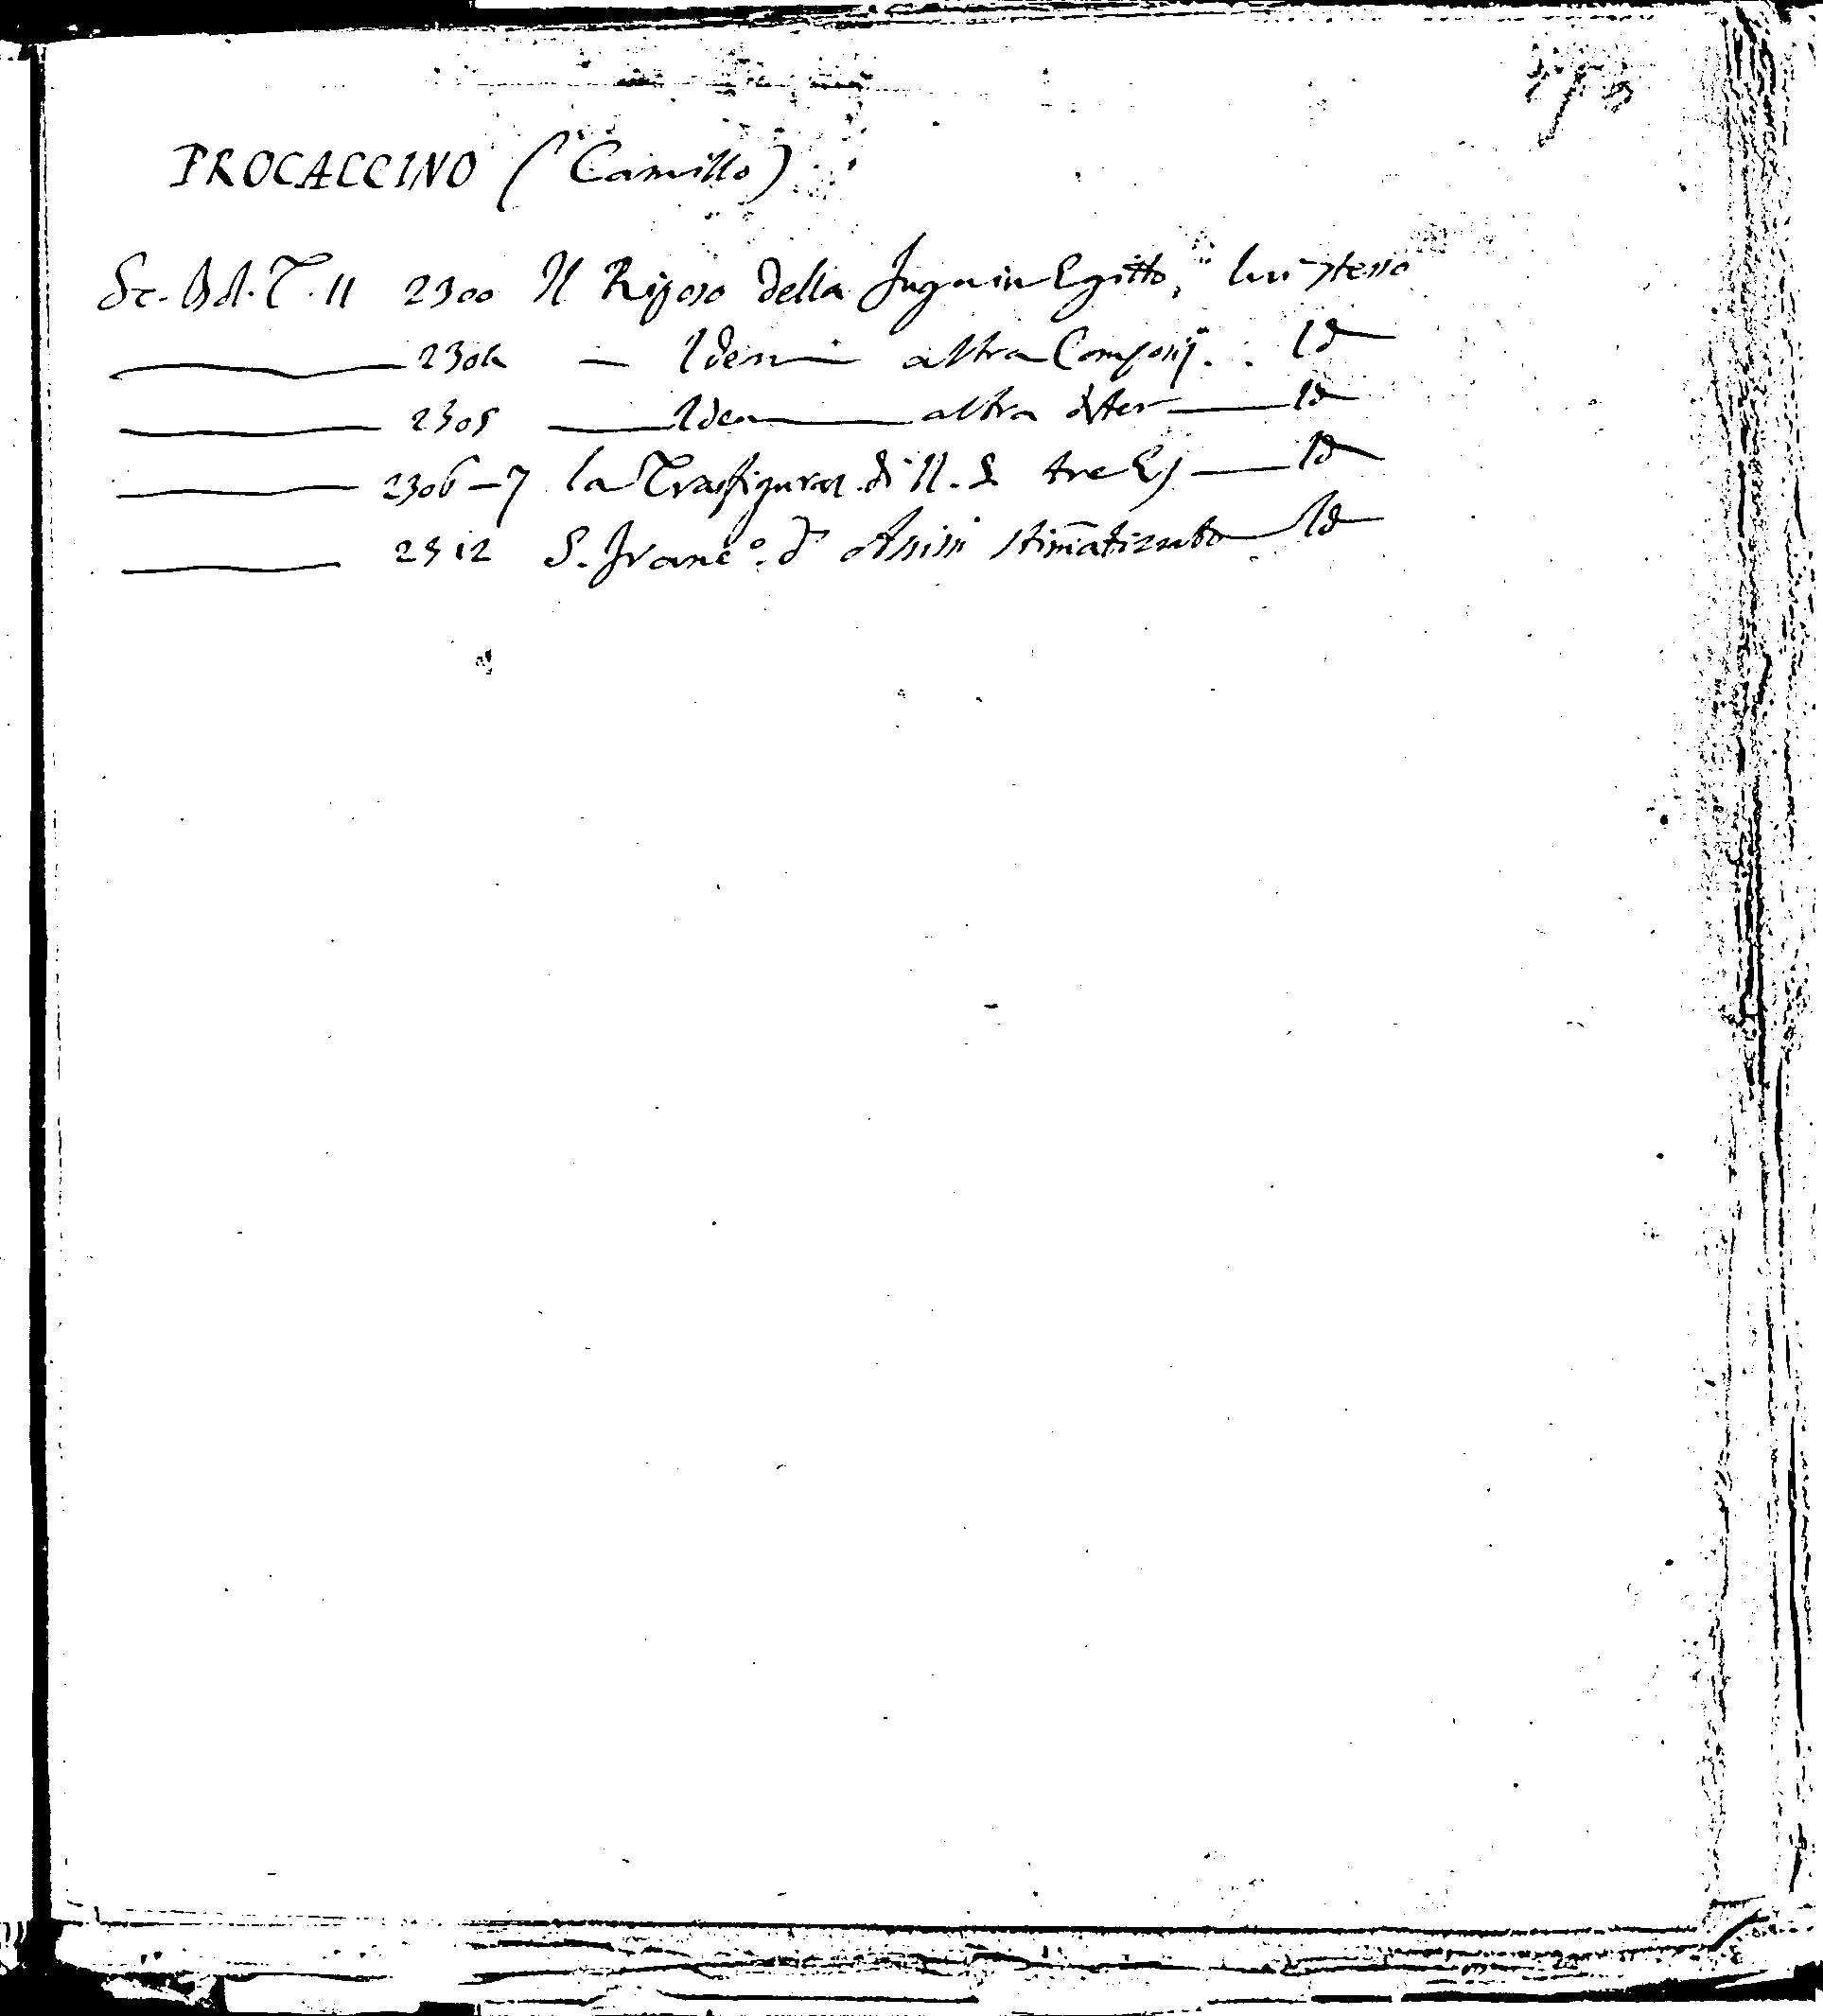 PROCACCINO (Camillo)
Sc. Bol. T. II 2300 Il Riposo della Fuga in Egitto, lui stesso
2304 — Idem — altra Composiz. . Id
2305 — Idem — altra — Id
2306-7 la Trasfiguraz. di N. S. tre Es — Id
2312 S. Franc.º d' Assisi stimatizzato Id